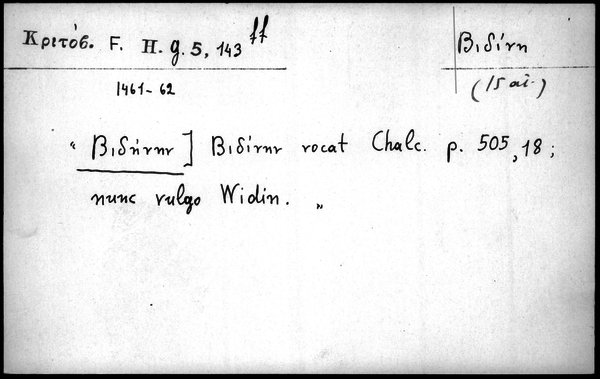 Κριτόβ. F. H. g. 5, 143 ff
Βιδίνη
(15 αἰ.)
1461-62
“ Βιδήνην ] Βιδίνην vocat Chalc. p. 505,18;
nunc vulgo Widin. „